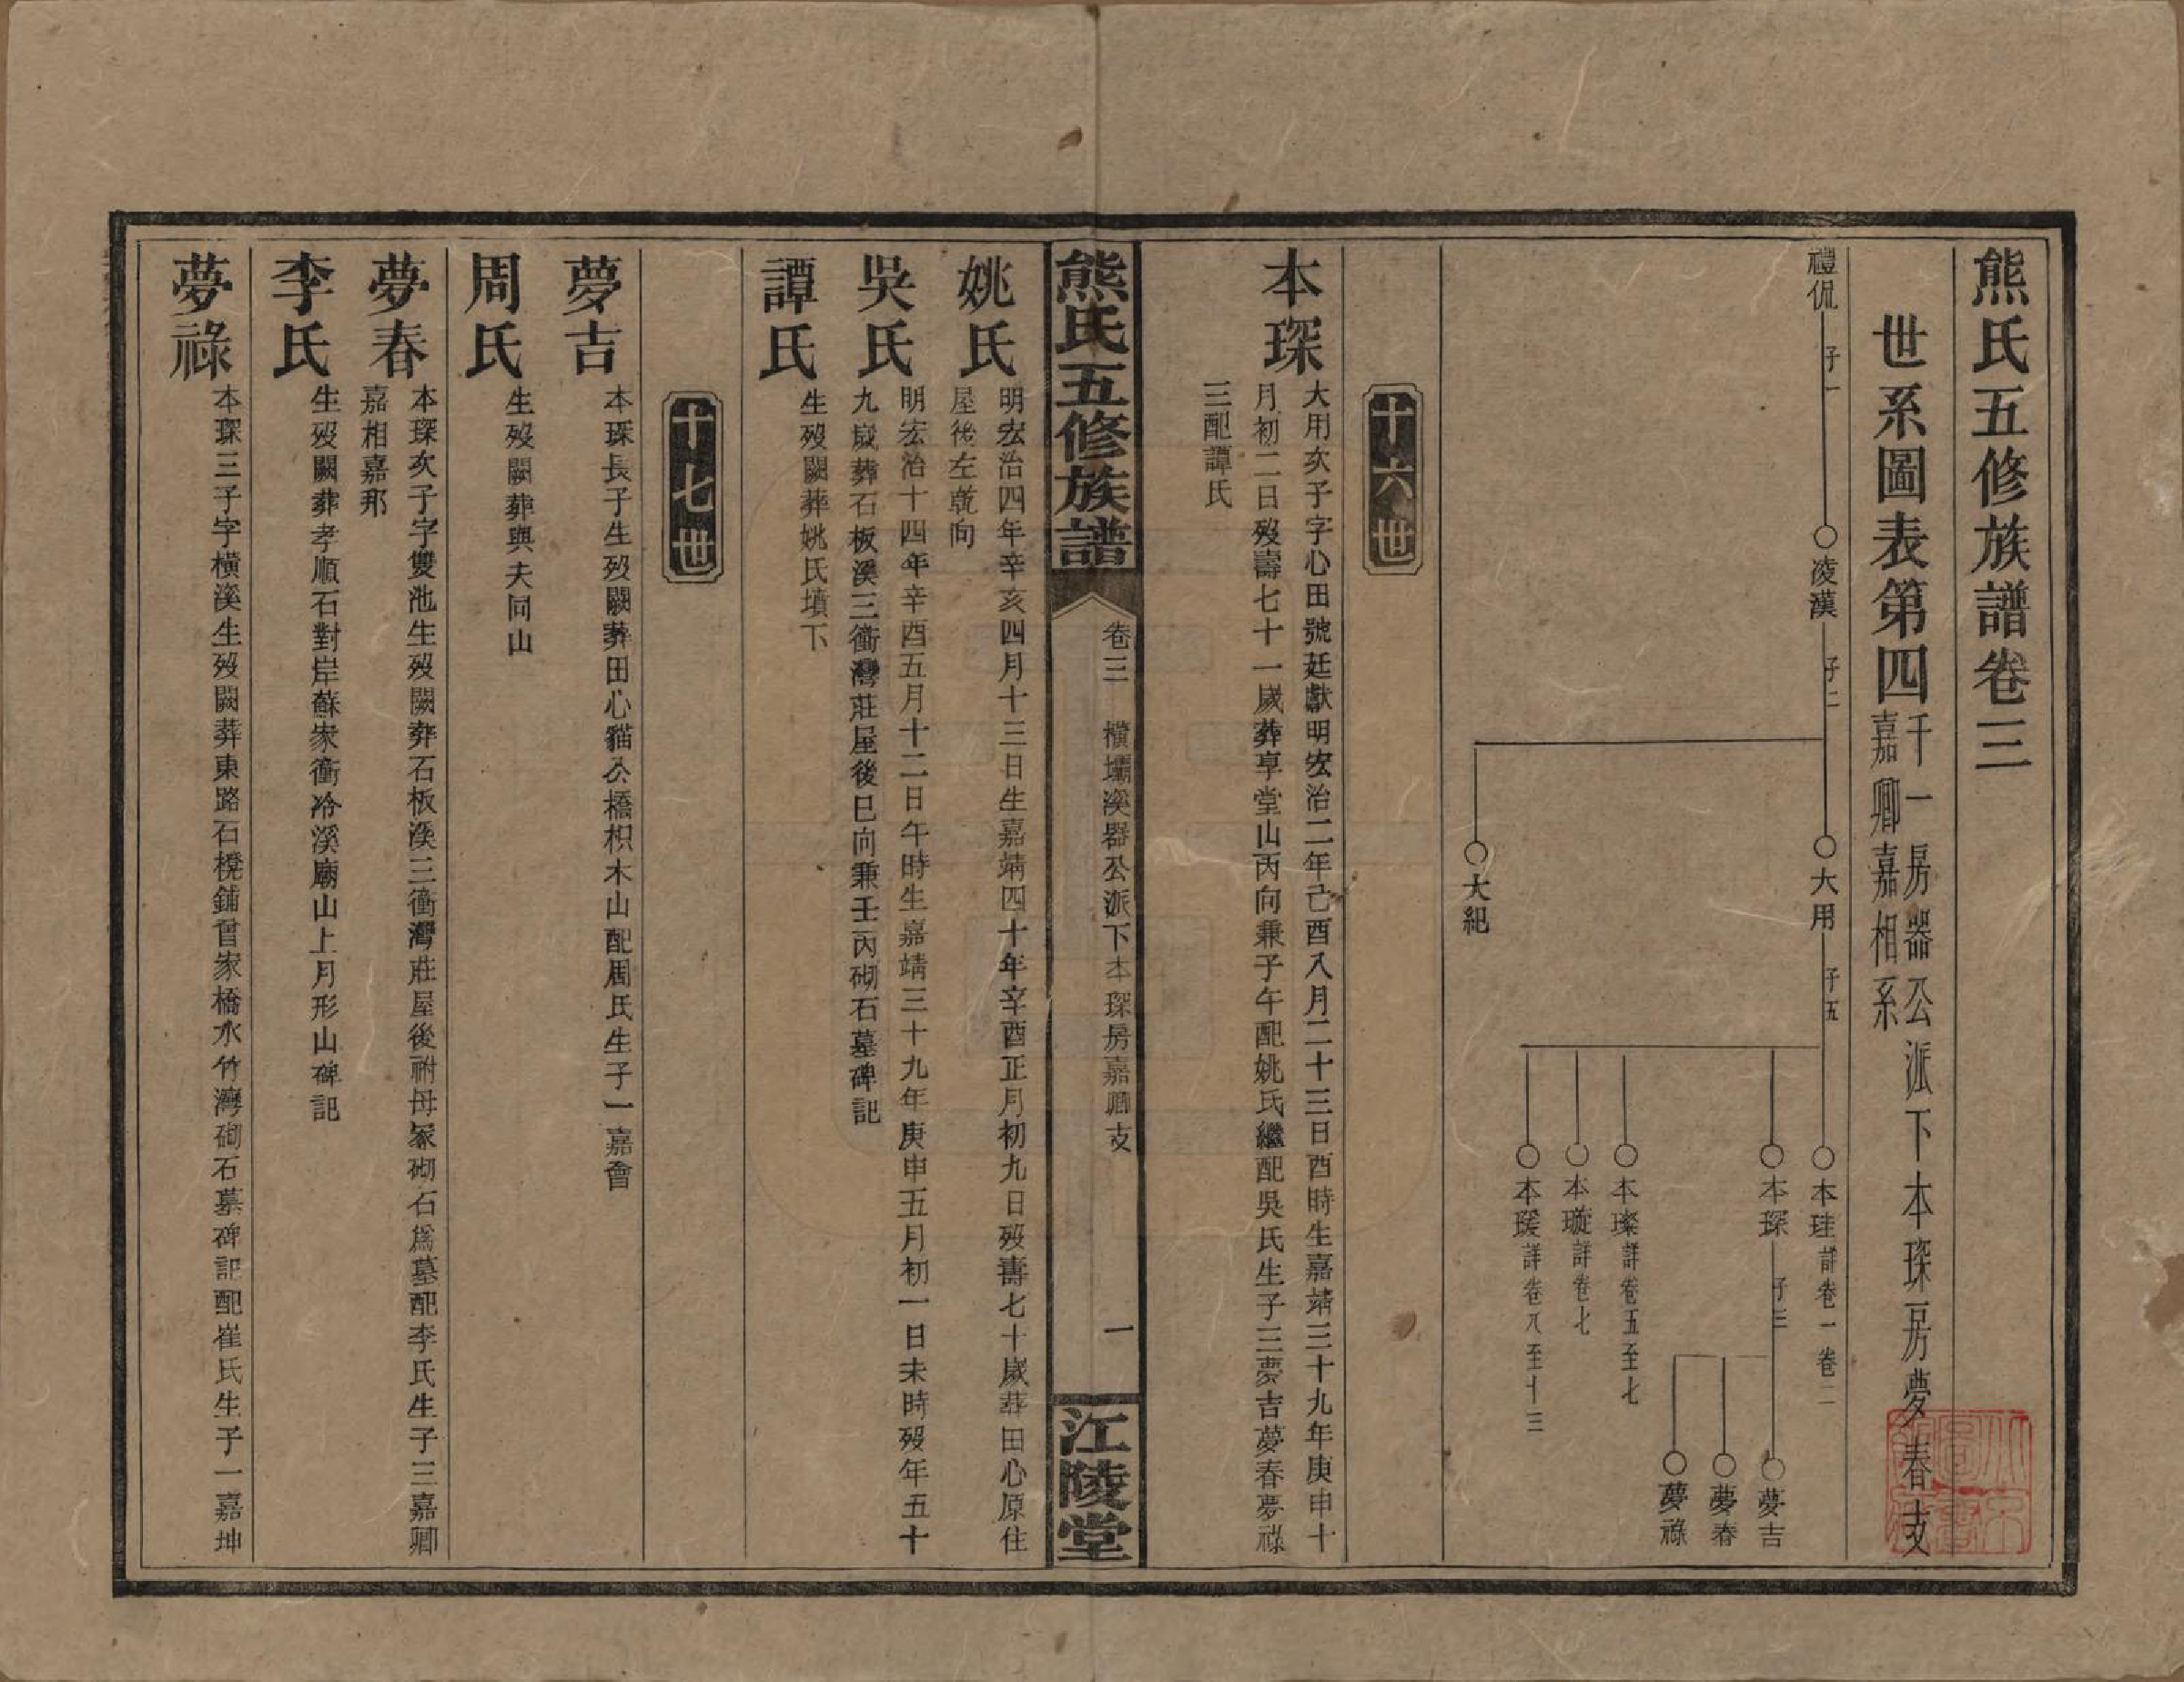 熊氏五修族譜卷三
世系圖表第四
千一房器公派下本琛房夢春支
嘉卿嘉相系
禮侃
子一
凌漢
子二
大用
大紀
子五
本珪詳卷一卷二
本琛
本璨詳卷五至七
本璇詳卷七
本瑗詳卷八至十三
子三
夢吉
夢春
夢祿
十六世
本琛
大用次子字心田號廷獻明宏治二年己酉八月二十三日酉時生嘉靖三十九年庚申十
月初二日歿壽七十一歲葬享堂山丙向兼子午配姚氏繼配吳氏生子三夢吉夢春夢祿
三配譚氏
熊氏五修族譜
卷三 橫壩溪器公派下本琛房嘉卿支
一
江陵堂
姚氏
明宏治四年辛亥四月十三日生嘉靖四十年辛酉正月初九日歿壽七十歲葬田心原住
屋後左乾向
吳氏
明宏治十四年辛酉五月十二日午時生嘉靖三十九年庚申五月初一日未時歿年五十
九歲葬石板溪三衝灣莊屋後巳向兼壬丙砌石墓碑記
譚氏
生歿闕葬姚氏墳下
十七世
夢吉
本琛長子生歿闕葬田心貓公橋枳木山配周氏生子一嘉會
周氏
生歿闕葬與夫同山
夢春
本琛次子字雙池生歿闕葬石板溪三衝灣莊屋後祔母冢砌石爲墓配李氏生子三嘉卿
嘉相嘉邦
李氏
生歿闕葬孝順石對岸蘇家衝冷溪廟山上月形山碑記
夢祿
本琛三子字橫溪生歿闕葬東路石櫈鋪曾家橋水竹灣砌石墓碑記配崔氏生子一嘉坤